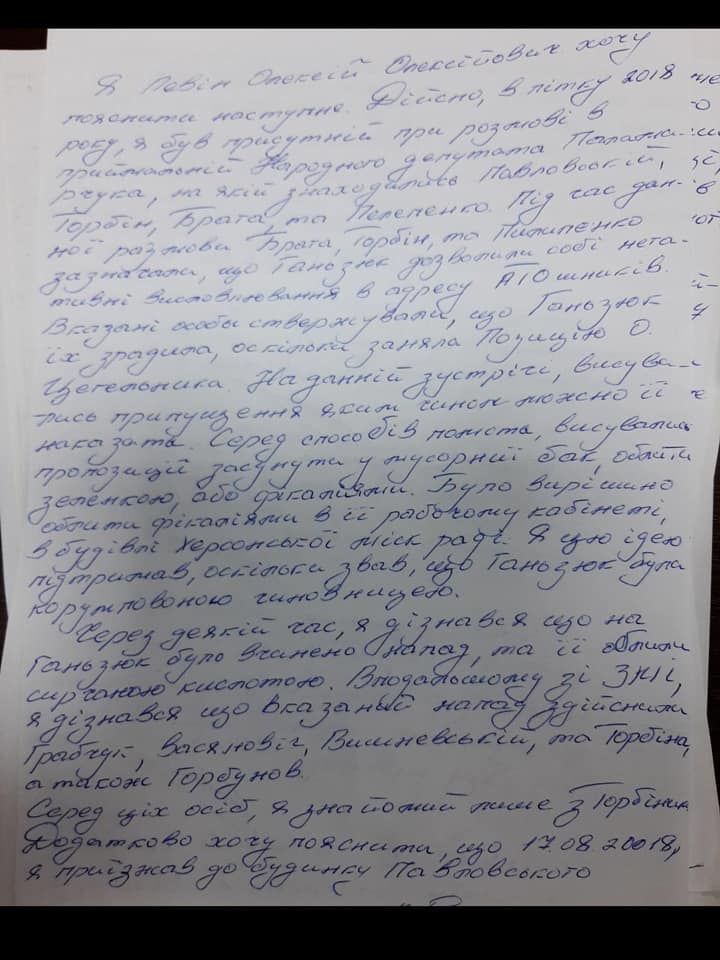 Я Левін Олексій Олексійович хочу
пояснити наступне. Дійсно, в літку 2018
року, я був присутній при розмові в
приймальній Народного депутата Паламa-
рчука, на якій знаходились Павловській,
Торбін, Брата, та Пелепенко. Під час дан-
ної размови Брата, Торбін, та Пилипенко
зазначали, що Ганьзюк дозволили собі нега-
тивні висловлювання в адресу АТОшників.
Вказані особы ствержували, що Ганьзюк
їх зрадила, оскільки заняла Позицію О.
Цегельника. На данній зустрічі, висува-
лись припущення яким чином можно її
наказать. Серед способів помста, висувались
пропозиції засунути у мусорний бак, облити
зеленкою, або фікаліями. Було вирішино
облити фікаліями в її рабочому кабінеті,
в будівлі Херсонської міск раді. Я цю ідею
підтримав, оскільки звав, що Ганьзюк була
корумповоною чиновницею.
Через деякій час, я дізнався що на
Ганьзюк було вчинено напад, та її облили
сирчаною кислотою. Вподальшому зі ЗМІ,
я дізнався що вказаный напад здійснили
Грабчук, Васяновіч, Вишневській, та Торбіна,
а також Горбунов.
Серед ціх осіб, я знайомий лише з Торбіним
Додатково хочу пояснити, що 17.08.20018,
я приїзжав до будинку Павловського